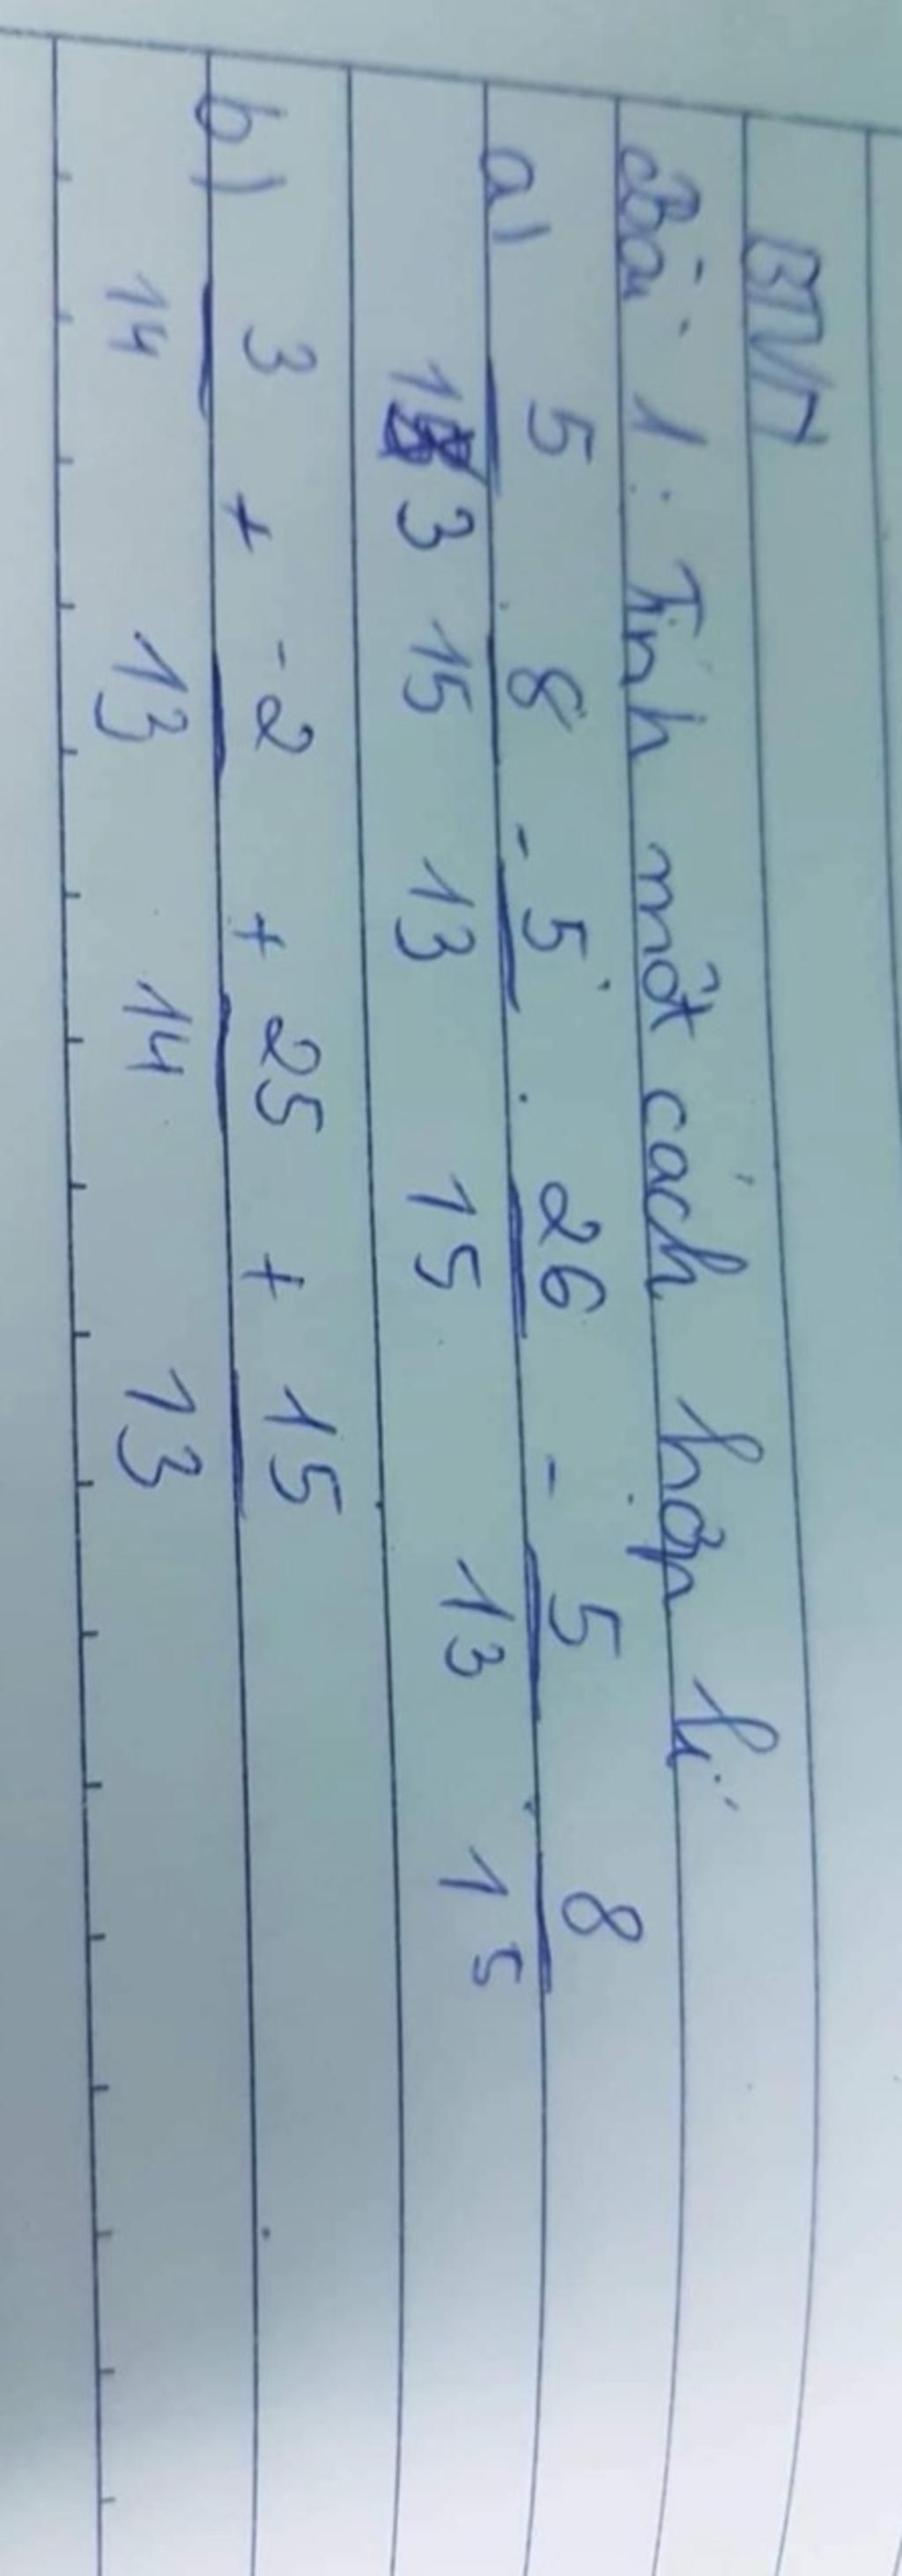 BTVN
Bài 1: Tính một cách hợp lí
a) 5/13 . 8/15 - 5/13 . 26/15 - 5/13 . 8/15
b) 3/14 + -2/13 + 25/14 + 15/13